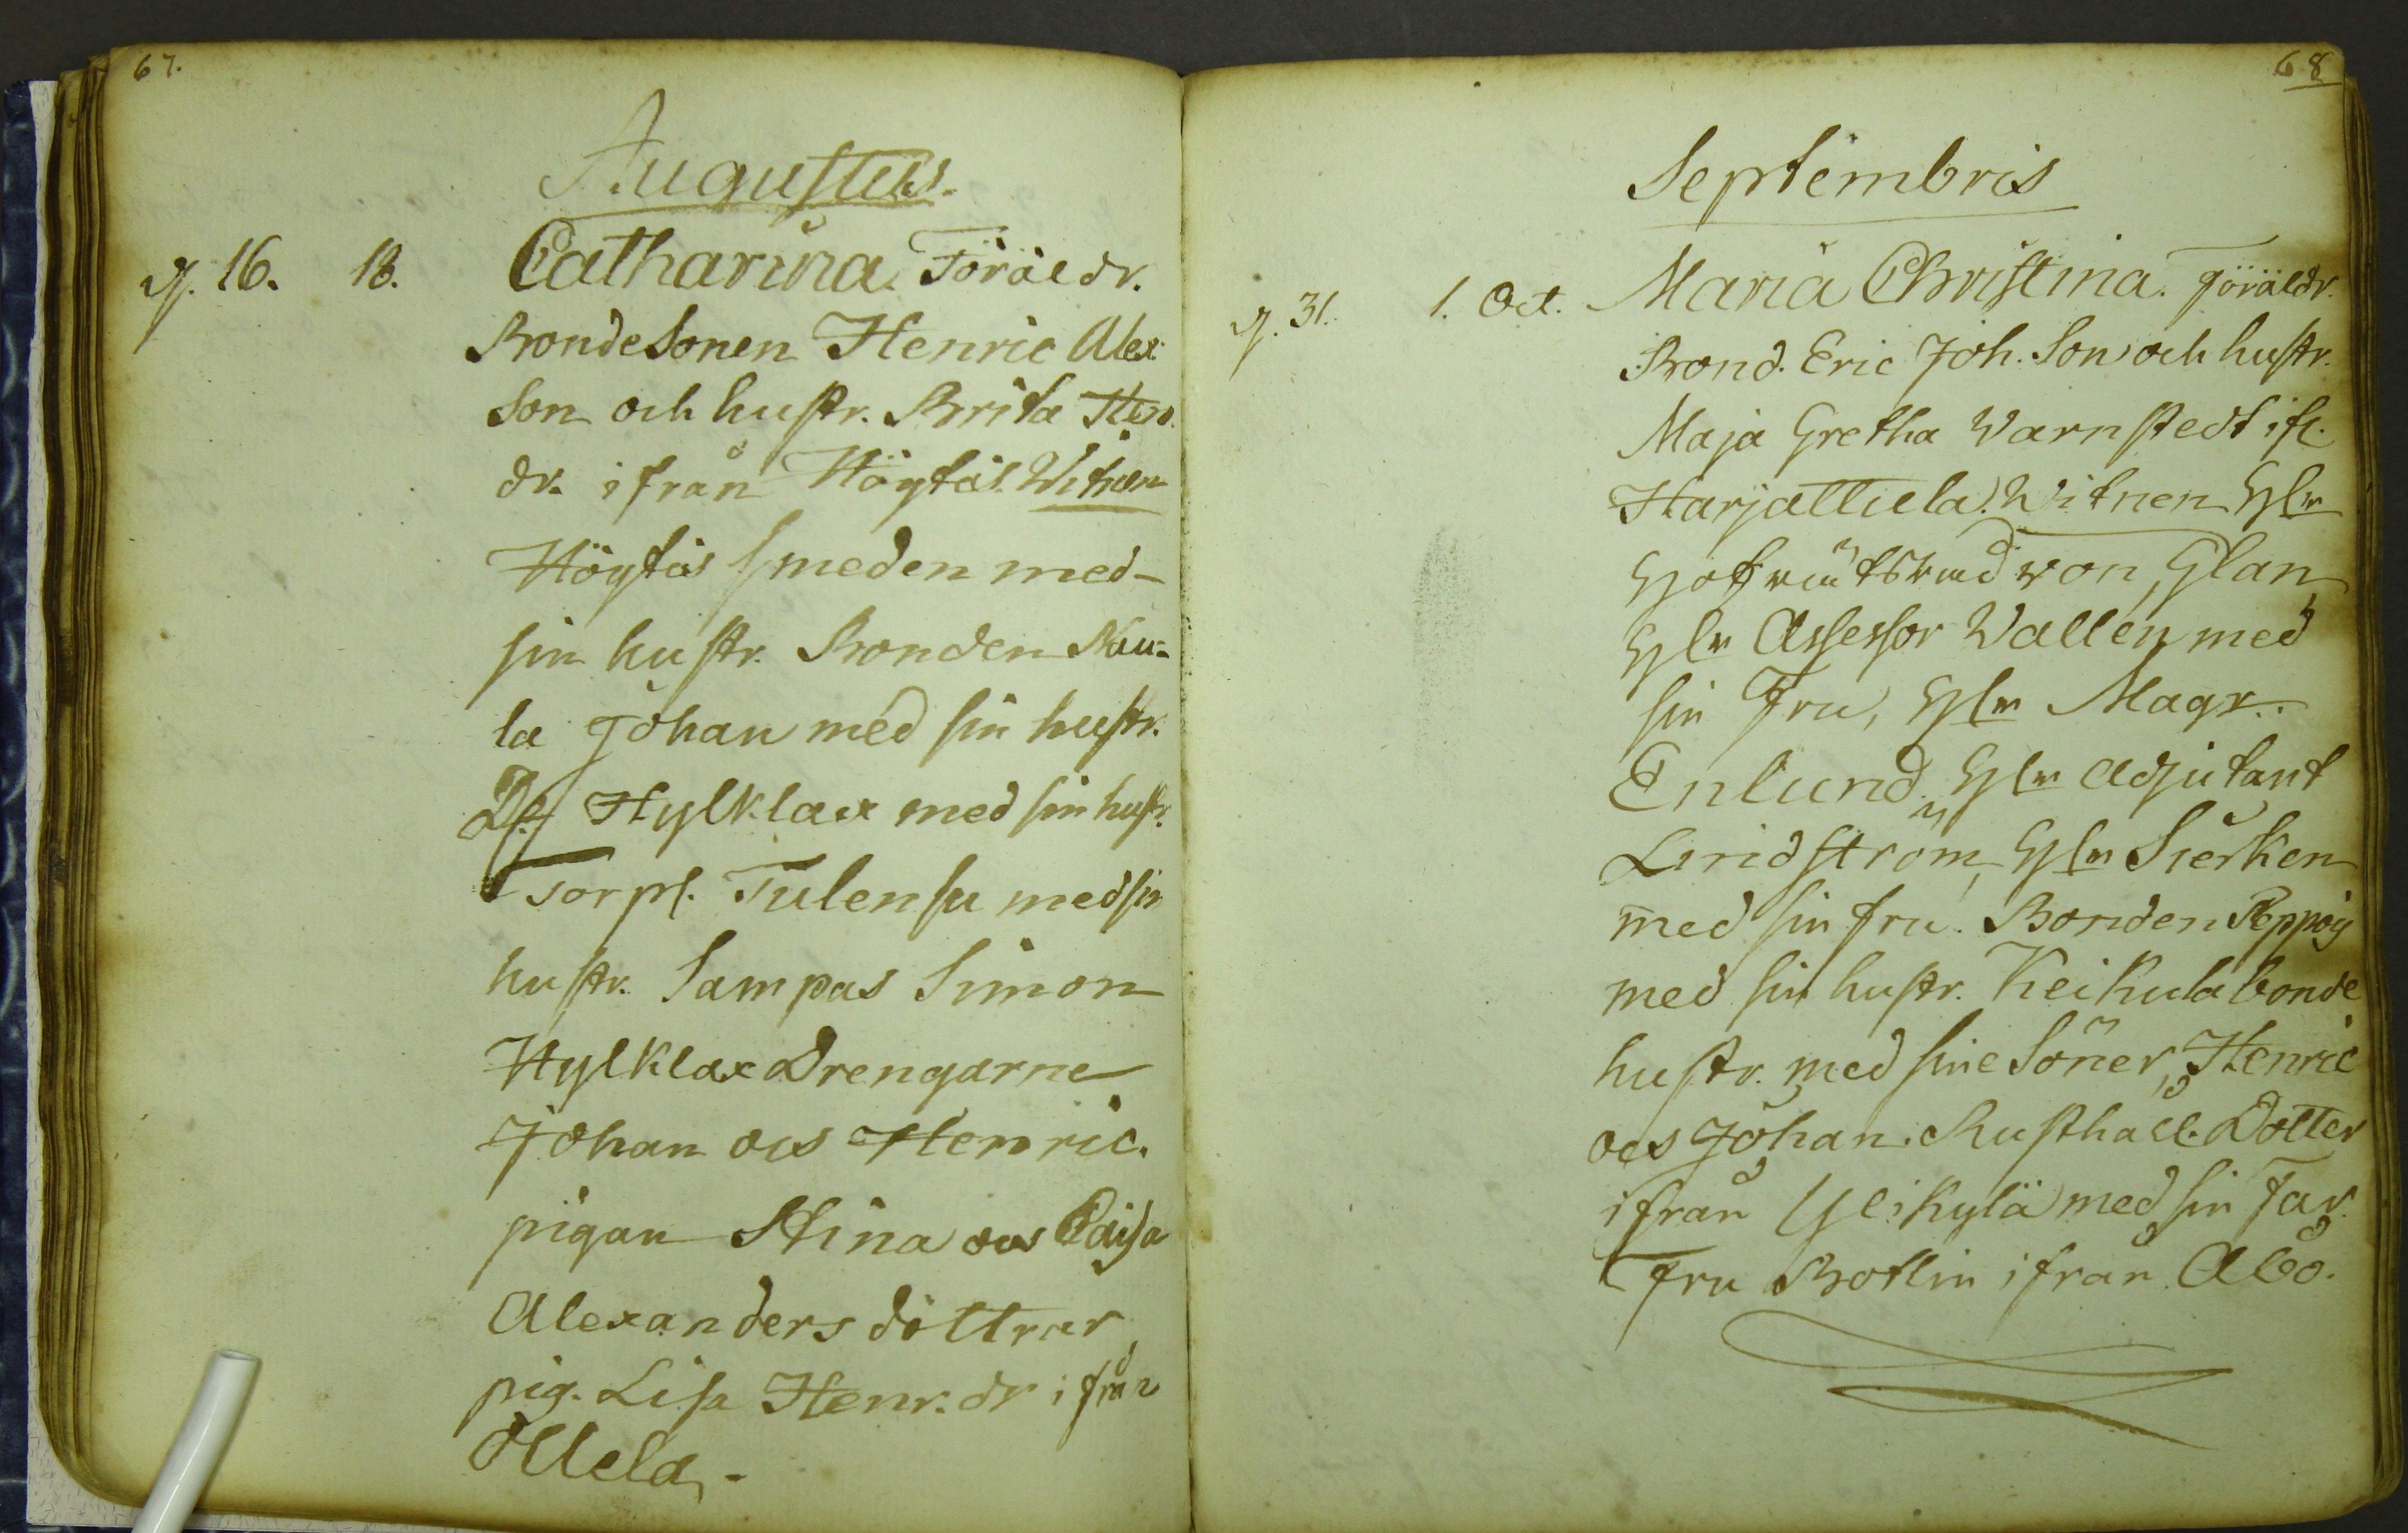 67.
Augustus.
d. 16. 18. Catharina. Föräldr.
BondeSonen Henric Alex
Son och hustr. Brita Hen.
dr. ifrån Höytäs. Witnen
Höytäs Smeden med
sin hustr. Bonden Nau-
la Johan med sin hustr.
Hylklax med sin hustr.
Torp. Tulensu med sin
hustr. Sampas Simon
Hylklax Drengarne
Johan ocs Henric.
pigan Stina ocs Caisa
Alexanders döttrar,
pig. Lisa Henr. dr ifrån
Ollela,-
68
Septembris
d. 31. 1. Oct. Maria Christina. Föräldr.
Bond. Eric Joh. Son och hustr.
Maja Gretha Warnstedt ifr.
Harjattula. Witnen Hr
Hofrättsråd von Glan,
Hr Assessor Wallen med
sin Fru, Hr Magr.
Enlund, Hr Adjutant
Lindström, Hr Sierken
med sin fru. Bonden Peppoig
med sin hustr. Keikula bonde
hustr. med sine Söner, Henric
ocs Johan. Rusthåll. Dotter
ifrån Ylikylä med sin Far.
Fru Botlin ifrån Åbo.